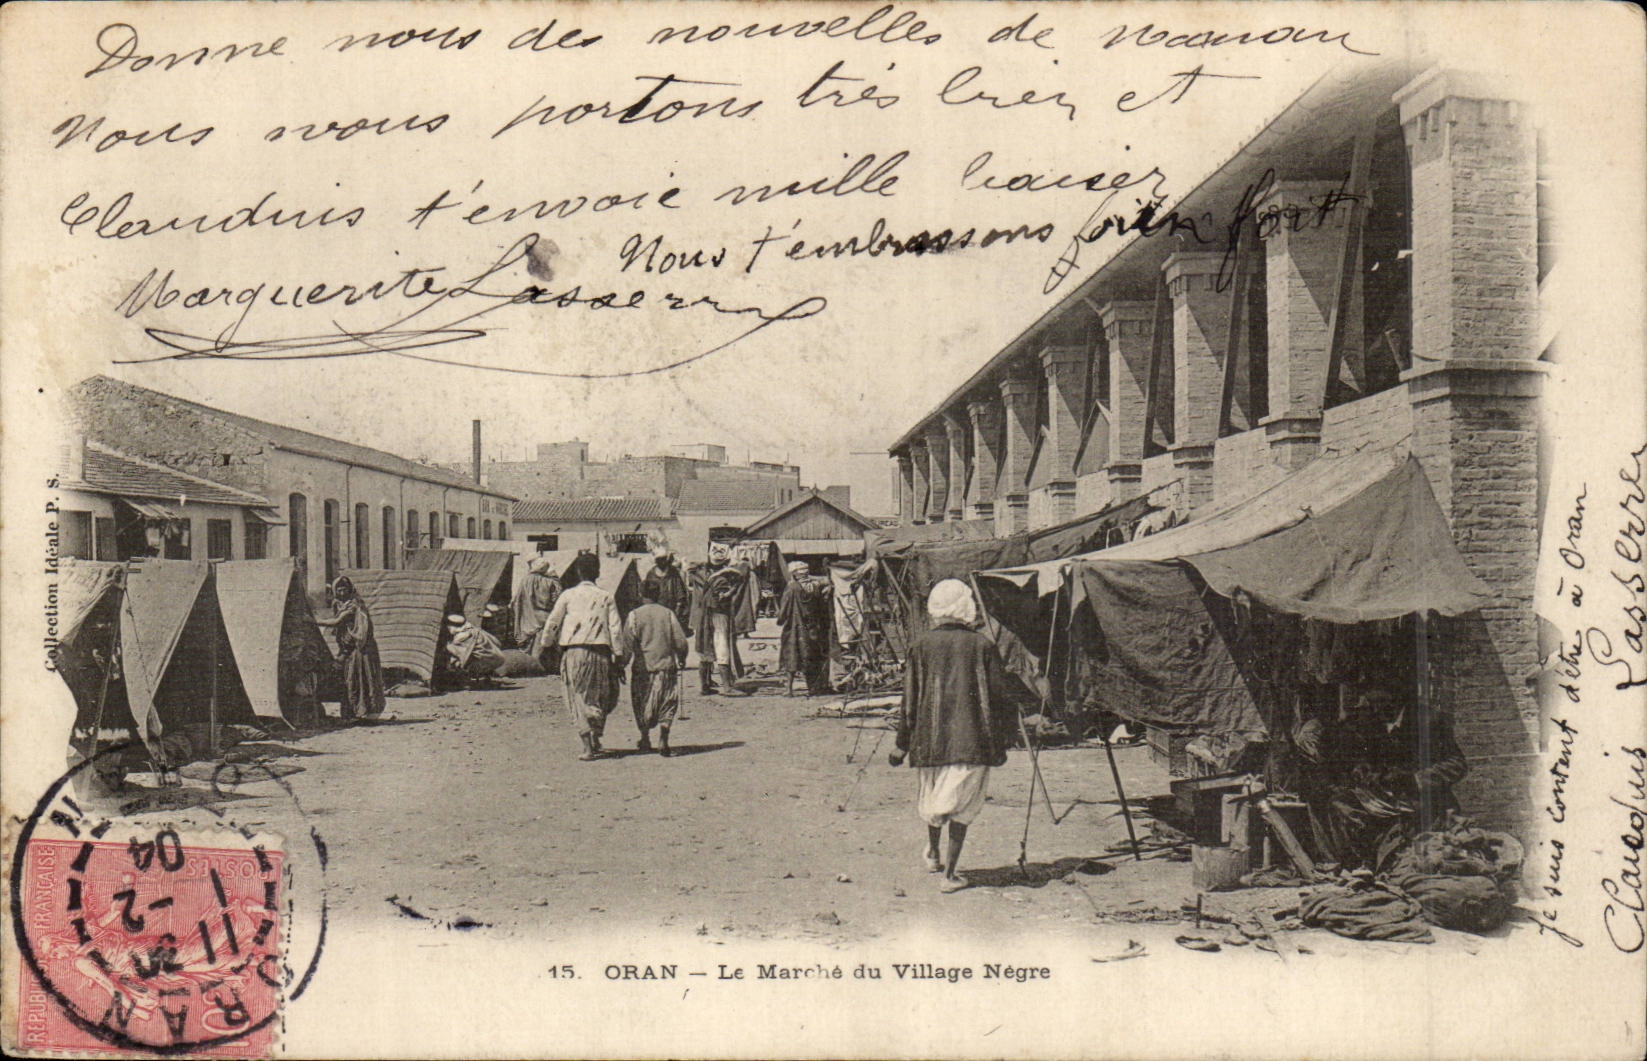 Donne nous des nouvelles de maman
Nous nous portons très bien et
Claudius t'envoie mille baiser
Nous t'embrassons bien fort
Marguerite Lasserre
Collection Idéale P. S.
Je suis content d'être à Oran
Claudius Lasserre
BUREAU
POSTES
RÉPUBLIQUE FRANÇAISE
ORAN
11 30
1 -2
04
15. ORAN – Le Marché du Village Nègre